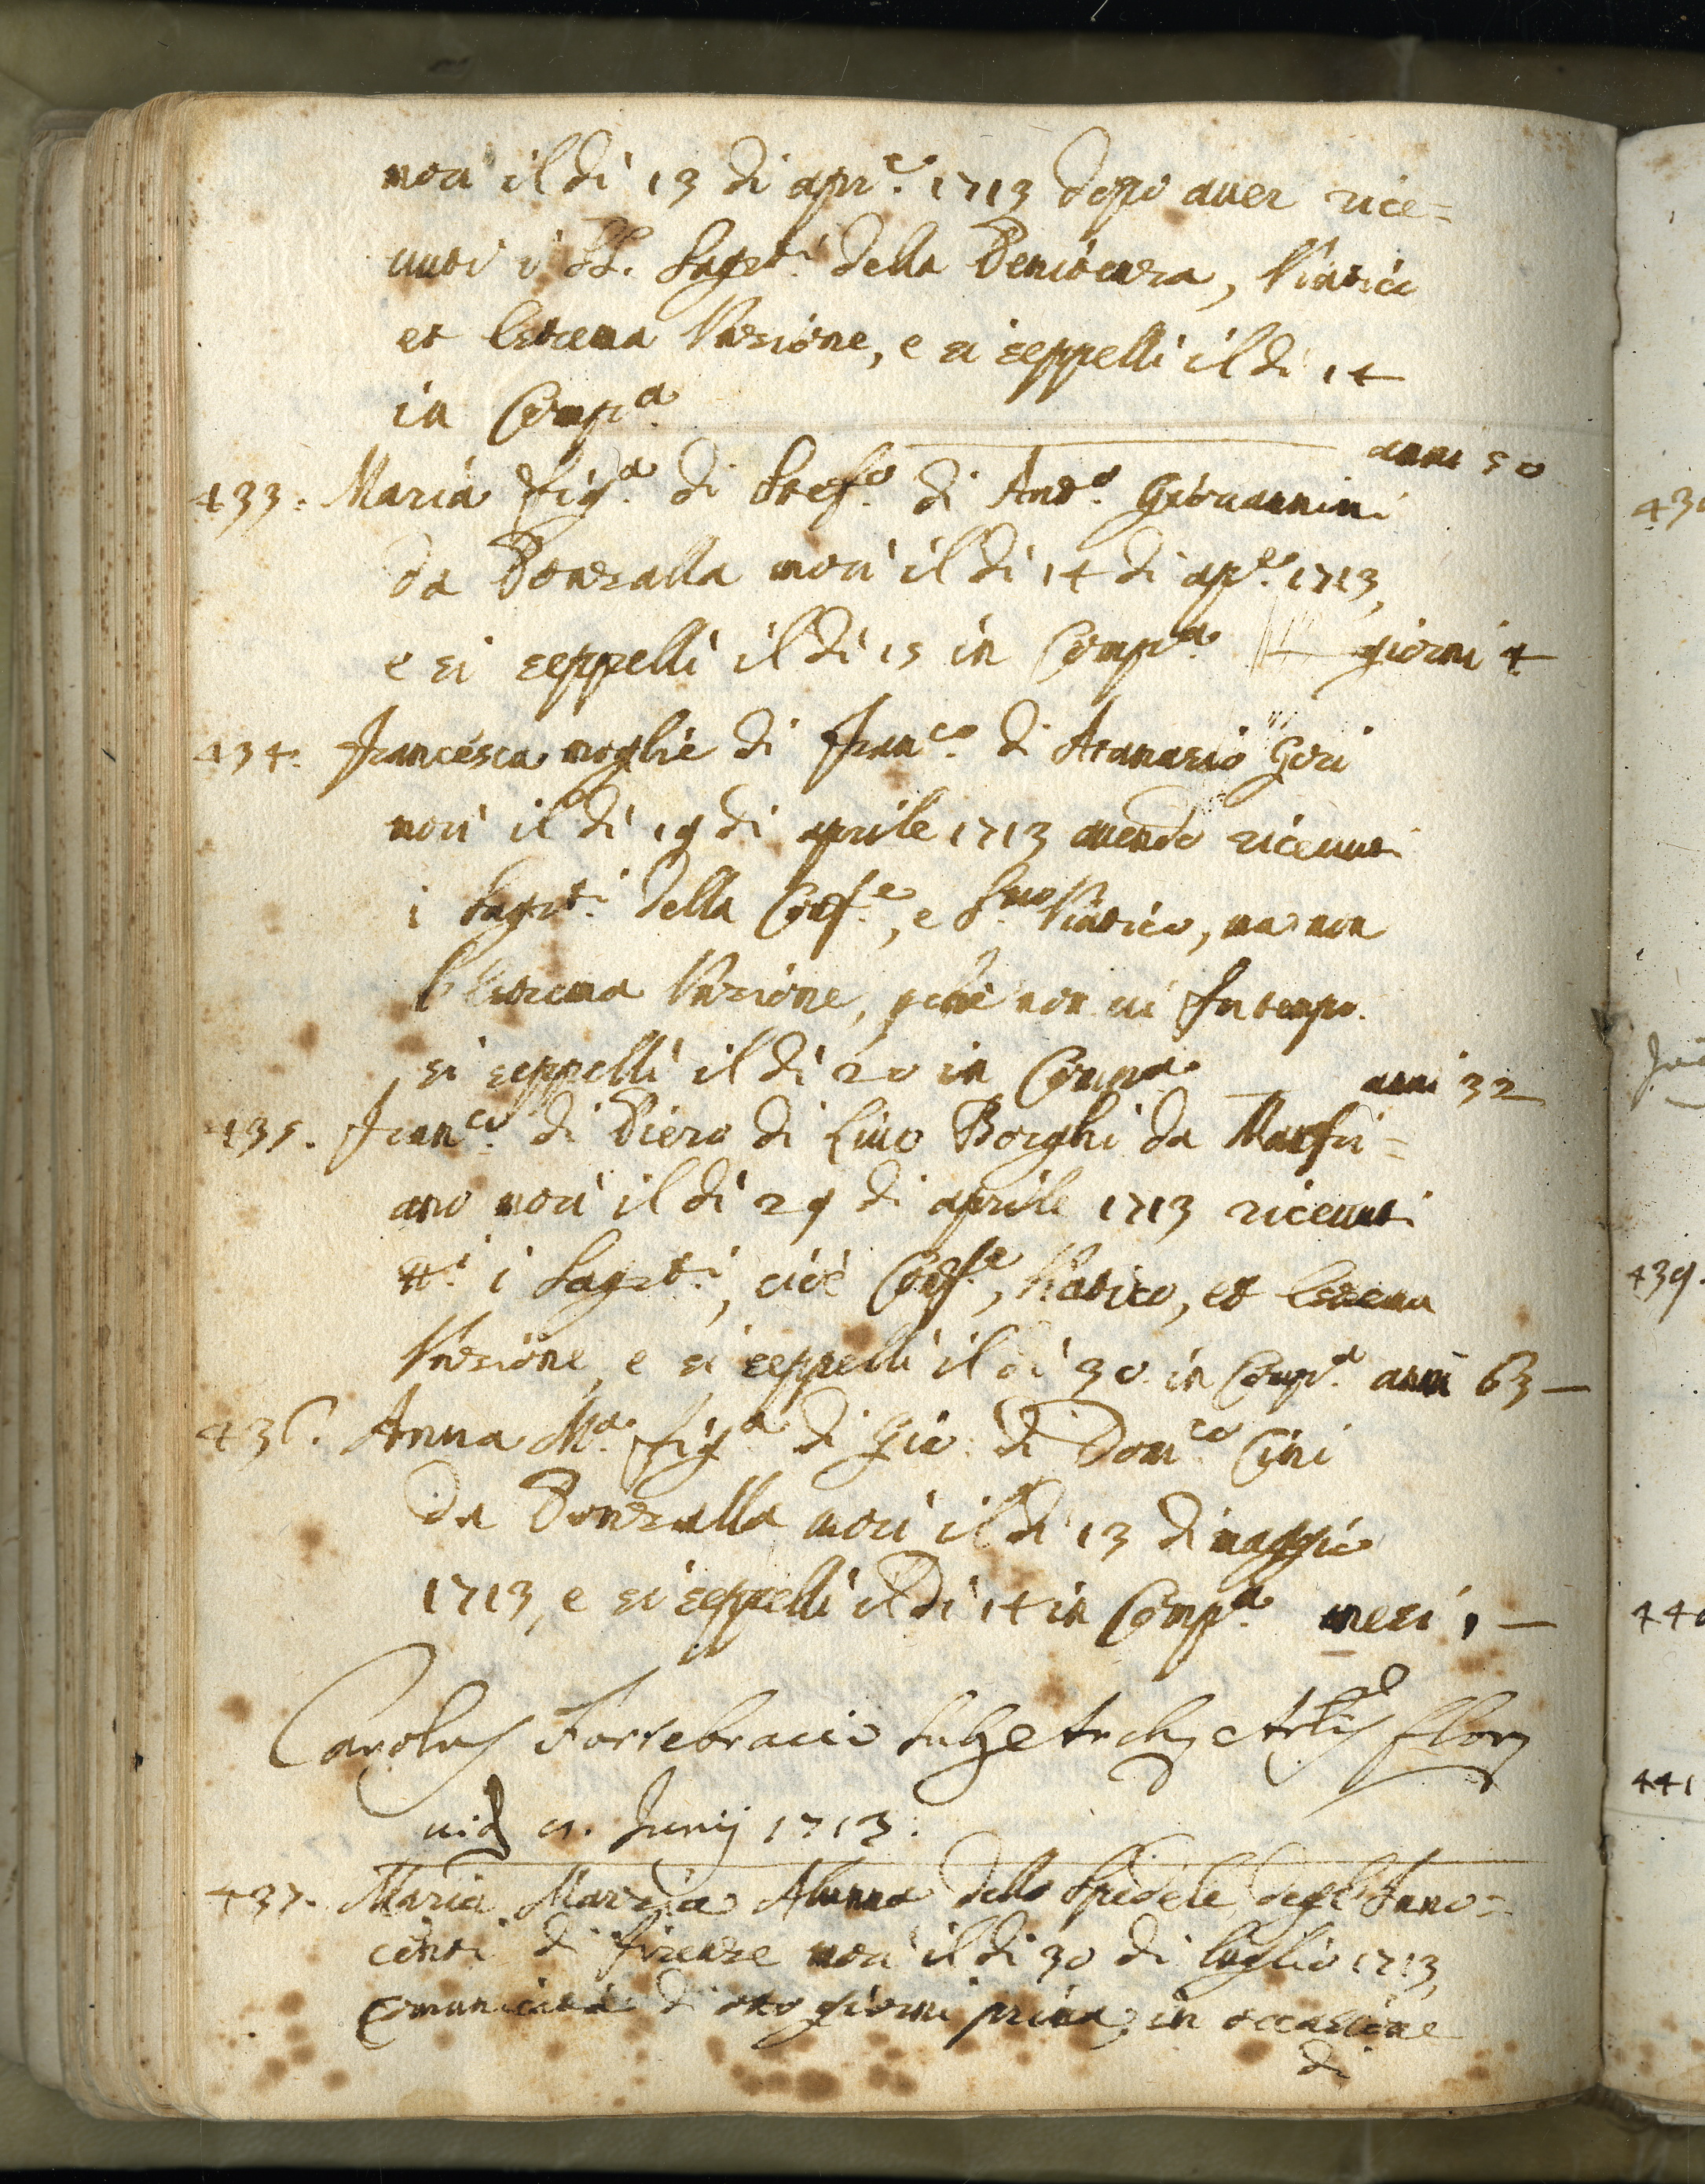 morì il dì 13 di apr.e 1713 dopo auer rice=
uuti i SS. Sagrti della Penitenza, Viatico
et Estrema Unzione, e si seppellì il dì 14
in Comp.a
anni 50
433. Maria fig.a di Stef.o di Ant.o Giouannini
da Bonzalla morì il dì 14 di ap.e 1713,
e si seppellì il dì 15 in Comp.a giorni 4
434. Francesca moglie di Fran.co di Atanasio Geri
morì il dì 19 di aprile 1713 auendo riceuuti
i Sagrti della Conf.e, e S.mo Viatico, ma non
l'Estrema Unzione, perchè non ui fu tempo.
si seppellì il dì 20 in Comp.a anni 32
435. Fran.co di Piero di Lino Borghi da Marfi=
ano morì il dì 29 di aprile 1713 riceuuti
tt.i i Sagrti, cioè Conf.e, Viatico, et Estrema
Unzione, e si seppellì il dì 30 in Comp.a anni 63 —
436. Anna M.a fig.a di Gio: di Dom.co Cini
da Bonzalla morì il dì 13 di maggio
1713, e si seppellì il dì 14 in Comp.a mesi 1 —
Carolus Fortebracci
uid Junij 1713.
437. Maria Marzia Alunna dello Spedele degl'Inno=
centi di Firenze morì il dì 30 di luglio 1713,
comunicata di otto giorni prima, in occasione
di
433
439.
440
441